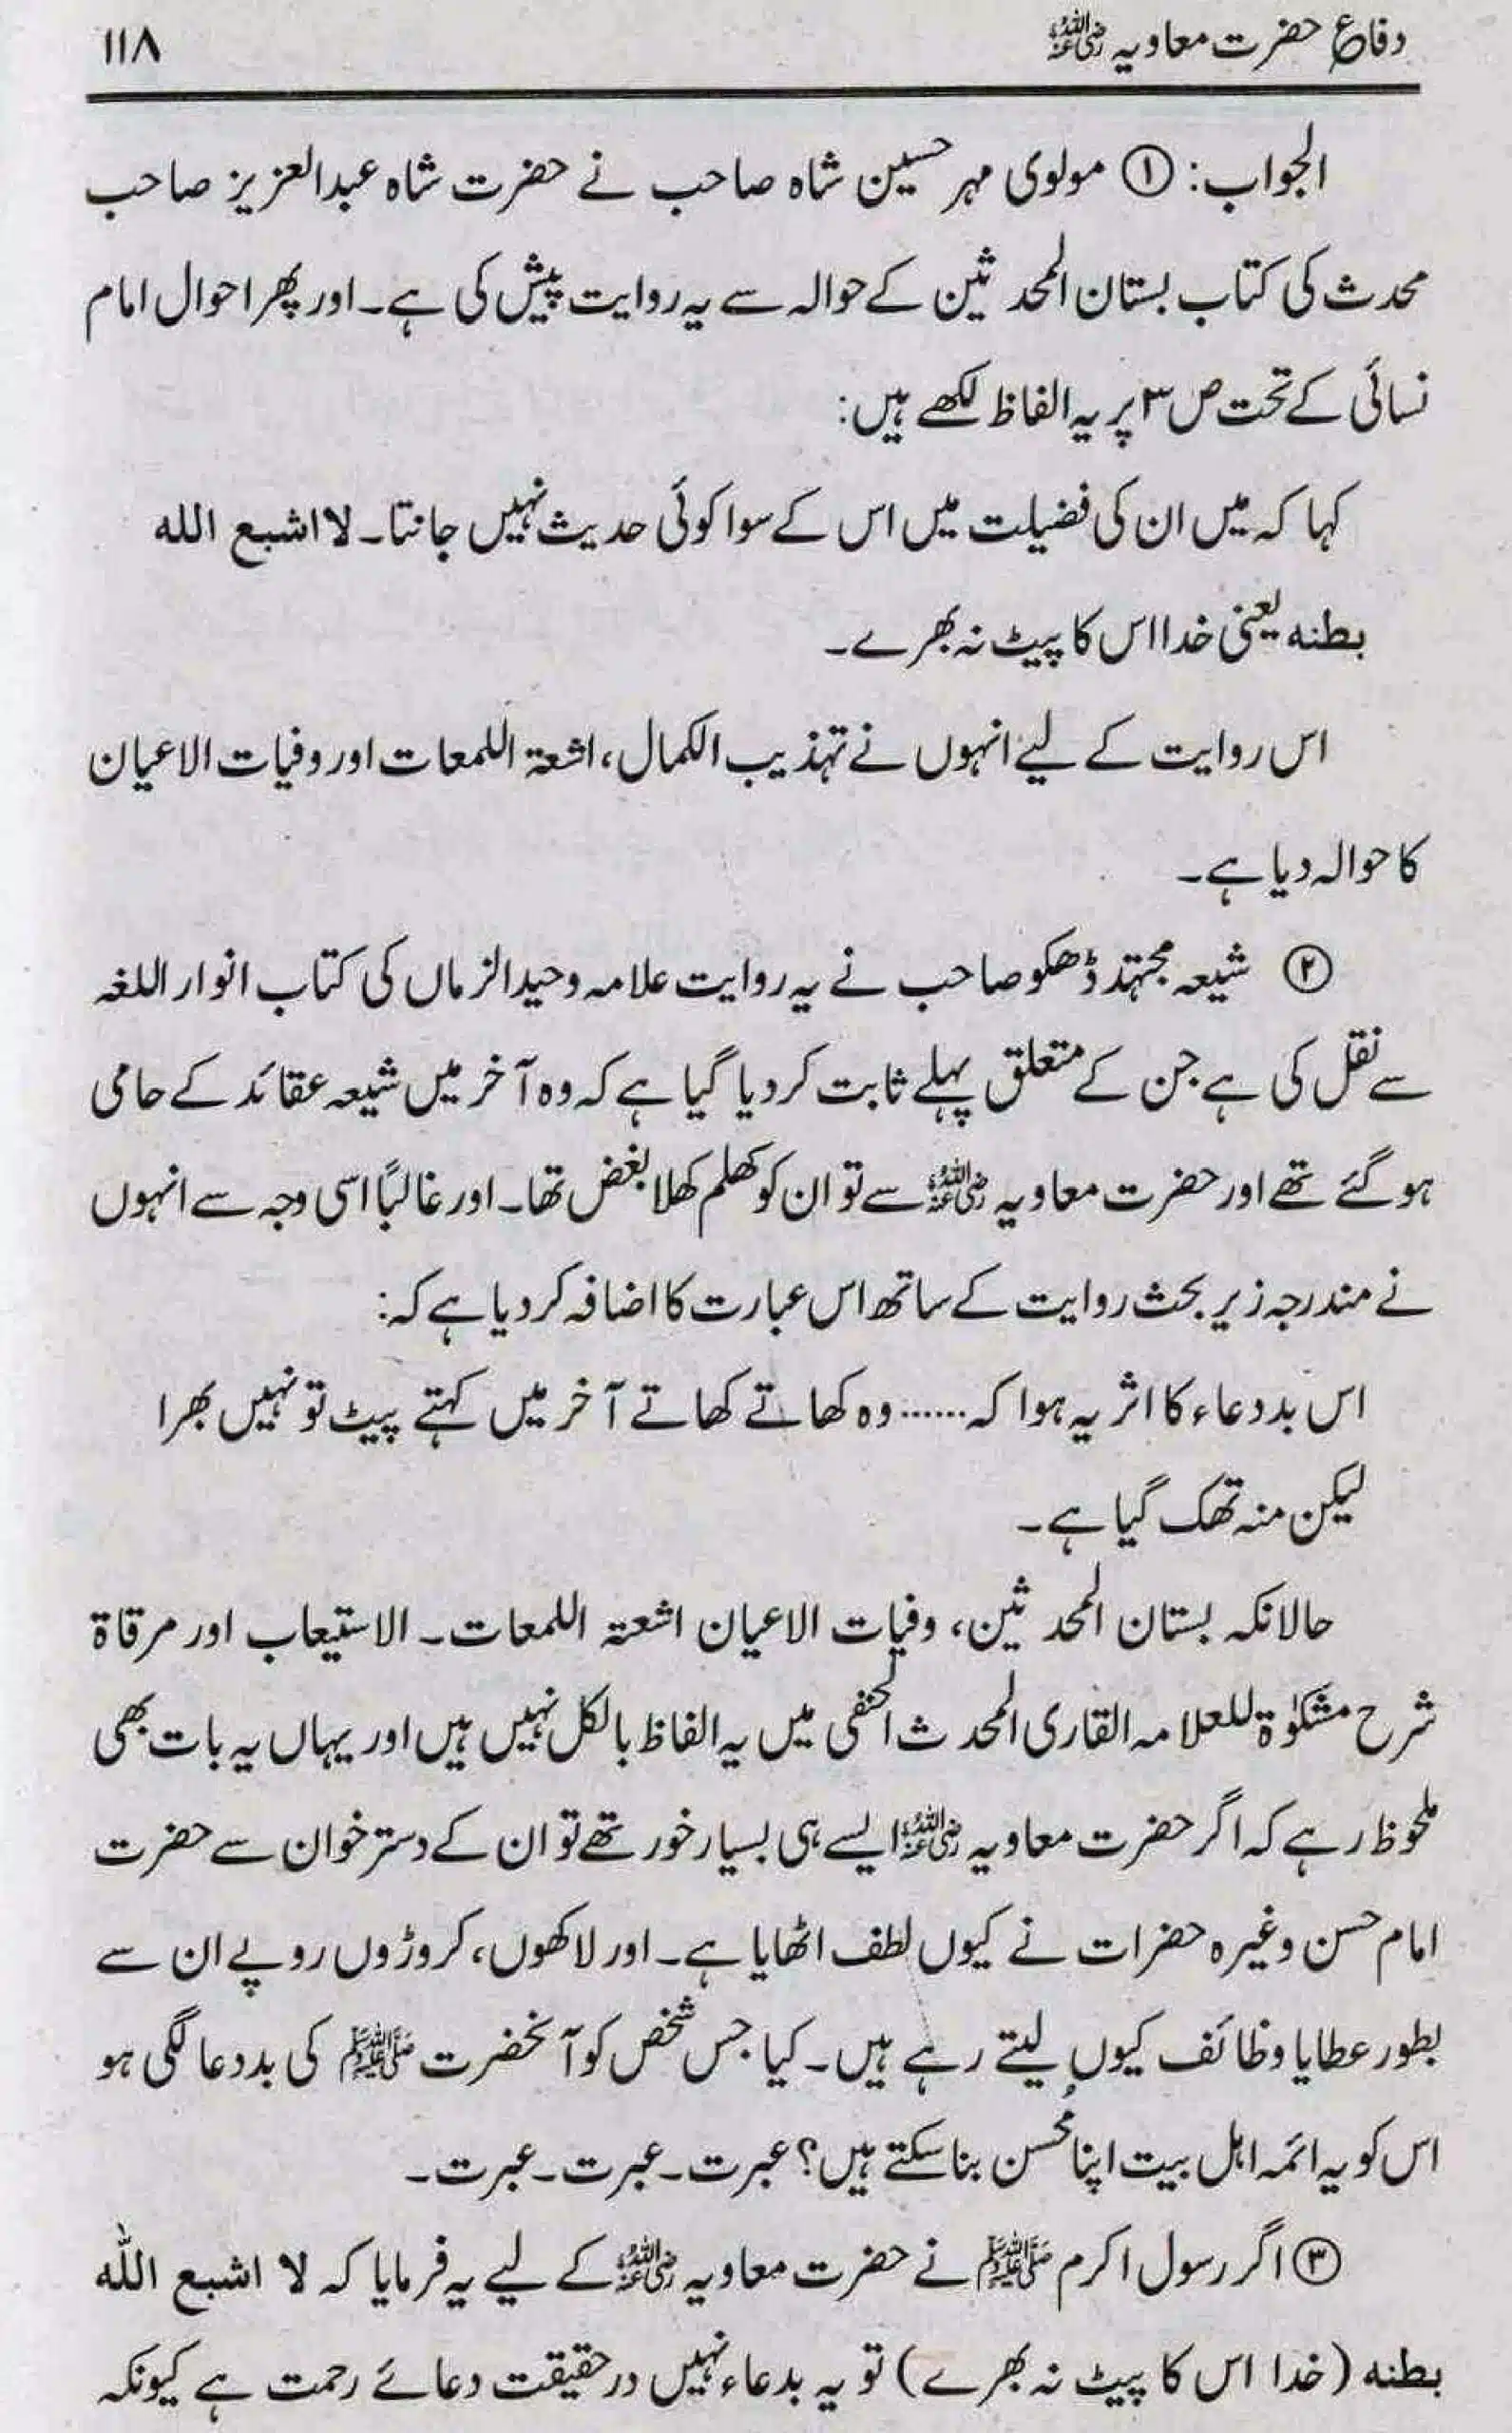 دفاع حضرت معاویہ رضی اللہ عنہ ۱۱۸
الجواب: ① مولوی مہر حسین شاہ صاحب نے حضرت شاہ عبدالعزیز صاحب
محدث کی کتاب بستان المحدثین کے حوالہ سے یہ روایت پیش کی ہے۔ اور پھر احوال امام
نسائی کے تحت ص ۳ پر یہ الفاظ لکھے ہیں:
کہا کہ میں ان کی فضیلت میں اس کے سوا کوئی حدیث نہیں جانتا۔ لا اشبع الله
بطنه یعنی خدا اس کا پیٹ نہ بھرے۔
اس روایت کے لیے انہوں نے تہذیب الکمال، اشعۃ اللمعات اور وفیات الاعیان
کا حوالہ دیا ہے۔
② شیعہ مجتہد ڈھکو صاحب نے یہ روایت علامہ وحید الزماں کی کتاب انوار اللغہ
سے نقل کی ہے جن کے متعلق پہلے ثابت کر دیا گیا ہے کہ وہ آخر میں شیعہ عقائد کے حامی
ہو گئے تھے اور حضرت معاویہ رضی اللہ عنہ سے تو ان کو کھلم کھلا بغض تھا۔ اور غالبًا اسی وجہ سے انہوں
نے مندرجہ زیر بحث روایت کے ساتھ اس عبارت کا اضافہ کر دیا ہے کہ:
اس بددعاء کا اثر یہ ہوا کہ...... وہ کھاتے کھاتے آخر میں کہتے پیٹ تو نہیں بھرا
لیکن منہ تھک گیا ہے۔
حالانکہ بستان المحدثین، وفیات الاعیان اشعتہ اللمعات۔ الاستیعاب اور مرقاۃ
شرح مشکوٰۃ للعلامہ القاری المحدث الحنفی میں یہ الفاظ بالکل نہیں ہیں اور یہاں یہ بات بھی
ملحوظ رہے کہ اگر حضرت معاویہ رضی اللہ عنہ ایسے ہی بسیار خور تھے تو ان کے دستر خوان سے حضرت
امام حسن وغیرہ حضرات نے کیوں لطف اٹھایا ہے۔ اور لاکھوں، کروڑوں روپے ان سے
بطور عطایا وظائف کیوں لیتے رہے ہیں۔ کیا جس شخص کو آنحضرت ﷺ کی بددعا لگی ہو
اس کو یہ ائمہ اہل بیت اپنا مُحسن بنا سکتے ہیں؟ عبرت۔ عبرت۔ عبرت۔
③ اگر رسول اکرم ﷺ نے حضرت معاویہ رضی اللہ عنہ کے لیے یہ فرمایا کہ لا اشبع الله
بطنه (خدا اس کا پیٹ نہ بھرے) تو یہ بدعاء نہیں درحقیقت دعائے رحمت ہے کیونکہ